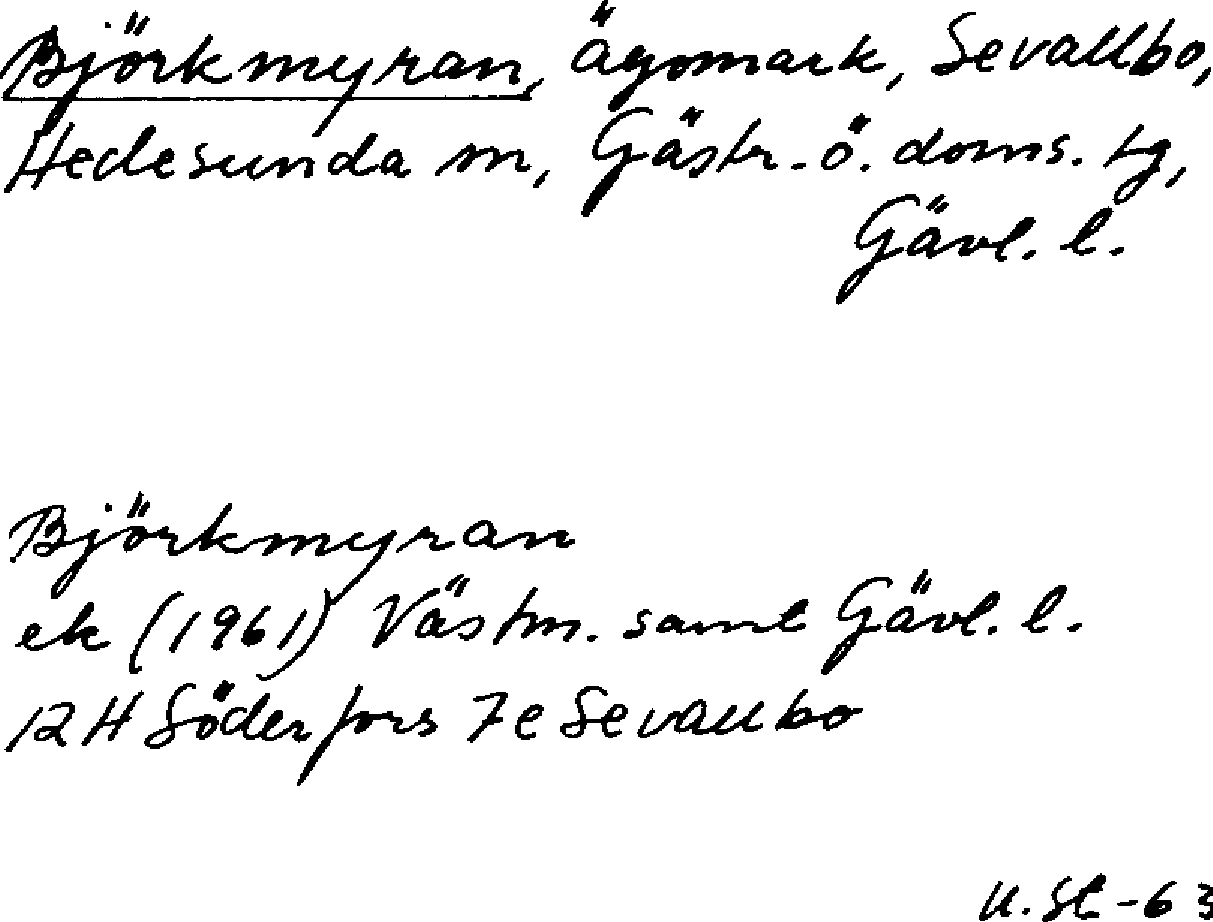 Björkmyran, ägomark, Sevallbo,
Hedesunda sn, Gästr. ö. doms. tg,
Gävl. l.
Björkmyran
ek (1961) Västm. samt Gävl. l.
12 H Söderfors 7e Sevallbo
U. St -63